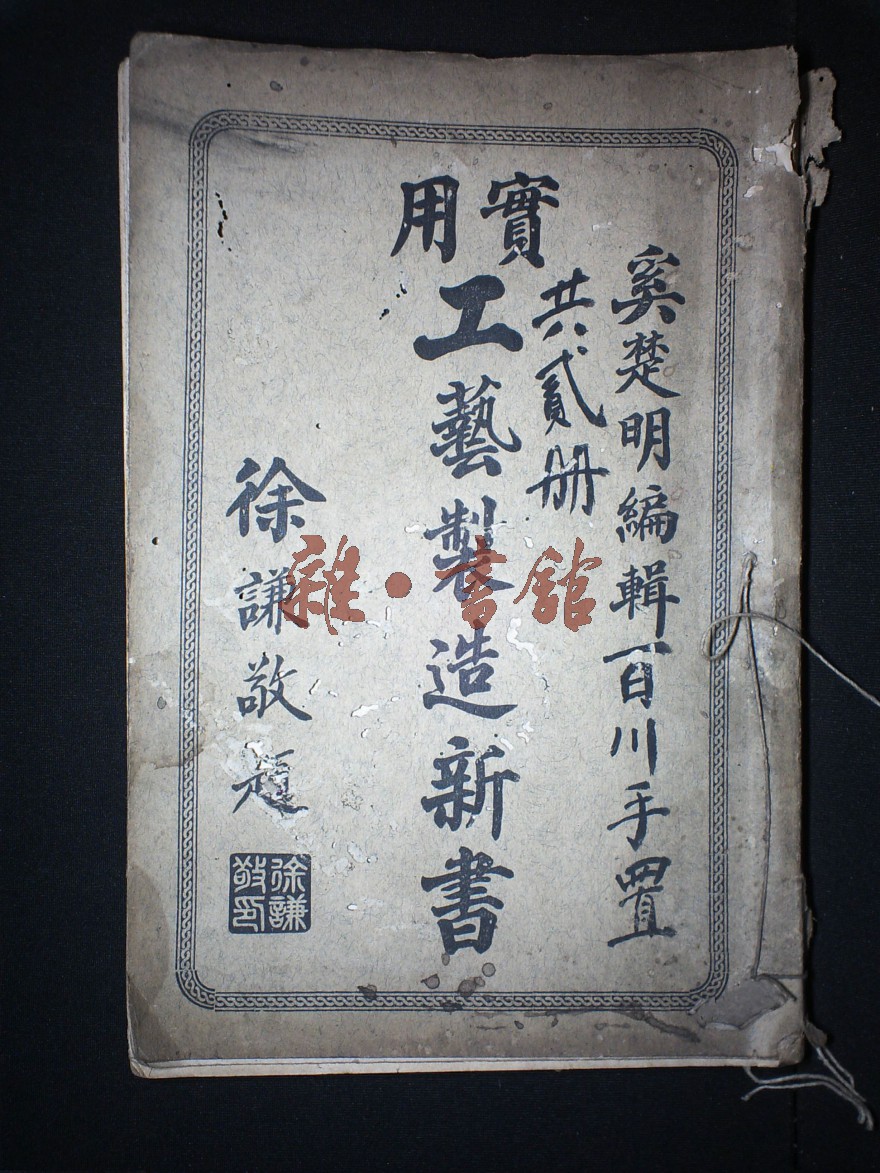 奚楚明編輯百川手置
共貳册
實用
工藝製造新書
徐謙敬題
徐謙敬印
雜·書館